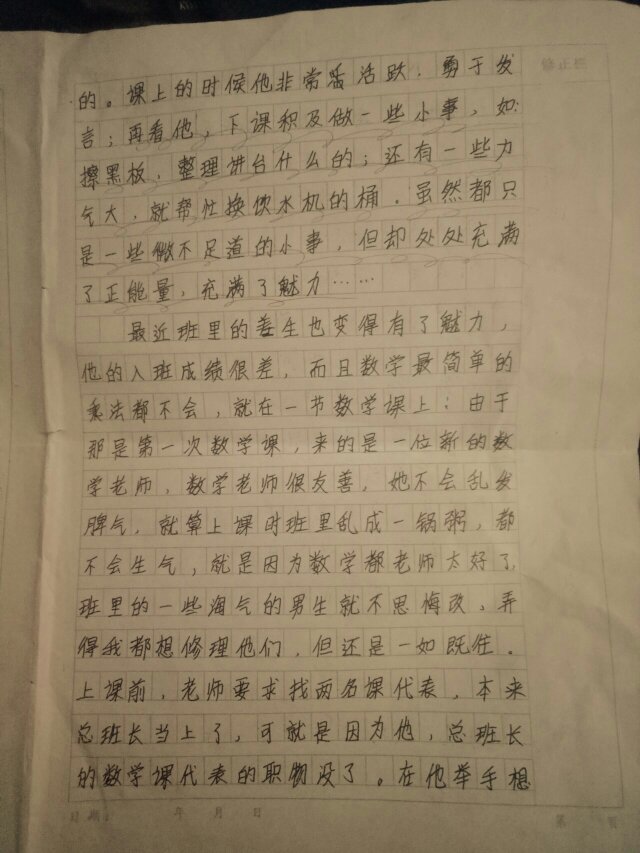 修正栏
的。课上的时候他非常活跃，勇于发
言；再看他，下课积及做一些小事，如
擦黑板，整理讲台什么的；还有一些力
气大，就帮忙换饮水机的桶．虽然都只
是一些微不足道的小事，但却处处充满
了正能量，充满了魅力……
最近班里的差生也变得有了魅力，
他的入班成绩很差，而且数学最简单的
乘法都不会，就在一节数学课上：由于
那是第一次数学课，来的是一位新的数
学老师，数学老师很友善，她不会乱发
脾气，就算上课时班里乱成一锅粥，都
不会生气，就是因为数学都老师太好了
班里的一些淘气的男生就不思悔改、弄
得我都想修理他们，但还是一如既往。
上课前，老师要求找两名课代表，本来
总班长当上了，可就是因为他，总班长
的数学课代表的职物没了。在他举手想
日期： 年 月 日 第 页